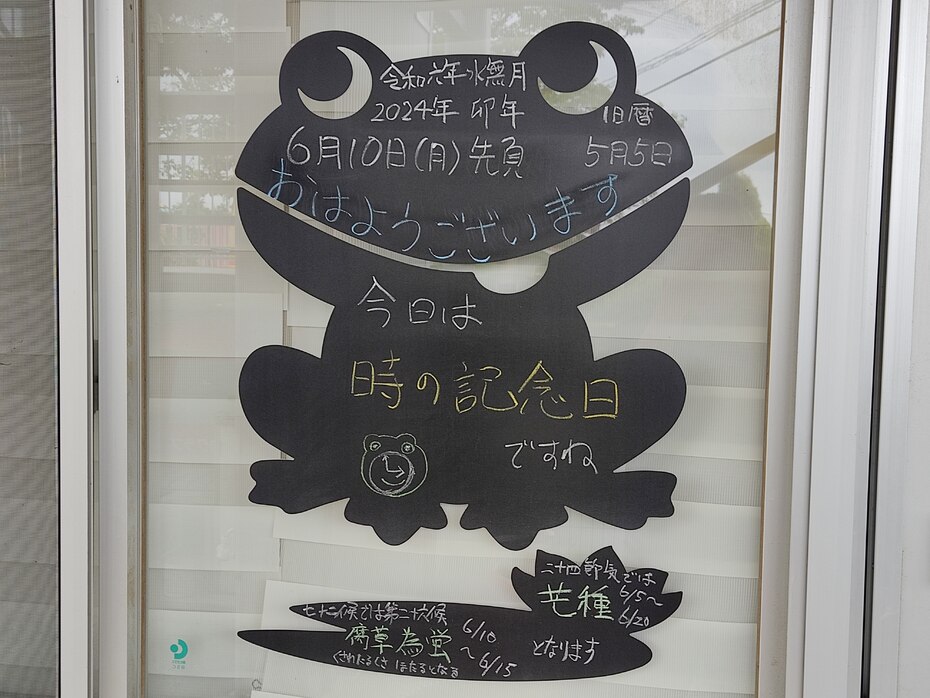 令和六年水無月
2024年 卯年
旧暦
6月10日(月)先負
5月5日
おはようございます
今日は
時の記念日
ですね
二十四節気では
芒種
6/5〜
6/20
となります
七十二候では第二十六候
腐草為蛍
6/10
〜6/15
くされたるくさ ほたるとなる